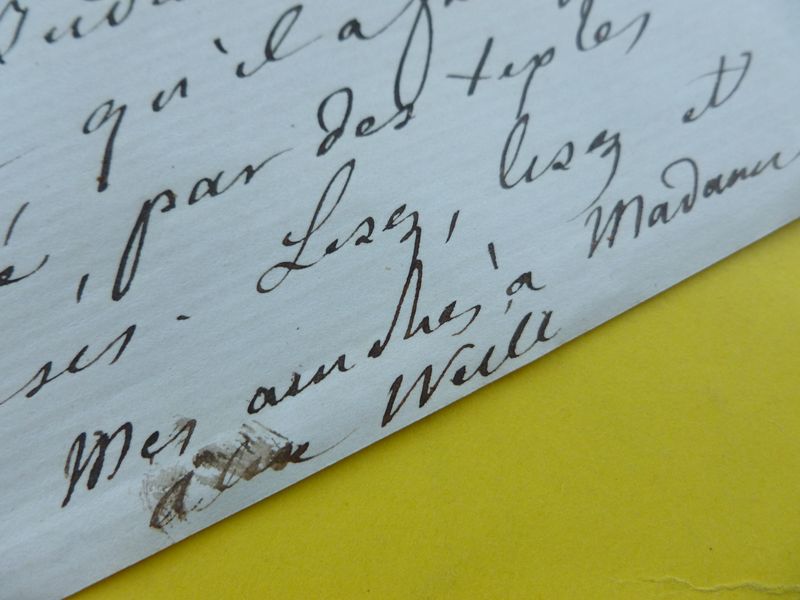 qu'il a
, par des textes
Lisez, lisez et
Mes amitiés à Madame
Alex Weill